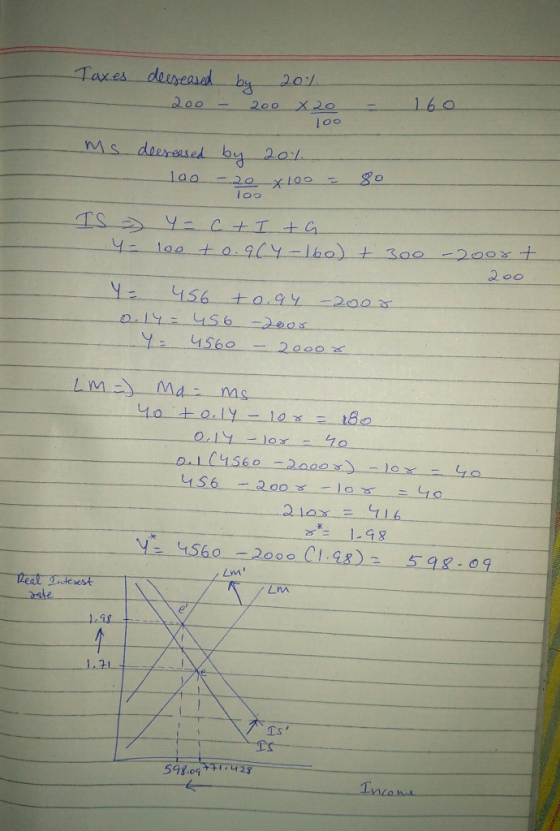 Taxes decreased by 20%
200 - 200 × 20/100 = 160
Ms decreased by 20%
100 - 20/100 × 100 = 80
IS => Y = C + I + G
Y = 100 + 0.9(Y-160) + 300 - 200r +
200
Y = 456 + 0.9Y - 200r
0.1Y = 456 - 200r
Y = 4560 - 2000r
LM => Md = Ms
40 + 0.1Y - 10r = 80
0.1Y - 10r = 40
0.1(4560 - 2000r) - 10r = 40
456 - 200r - 10r = 40
210r = 416
r* = 1.98
Y* = 4560 - 2000(1.98) = 598.09
Real Interest
rate
LM'
LM
e'
1.98
1.71
e
IS'
IS
598.09 771.428
Income